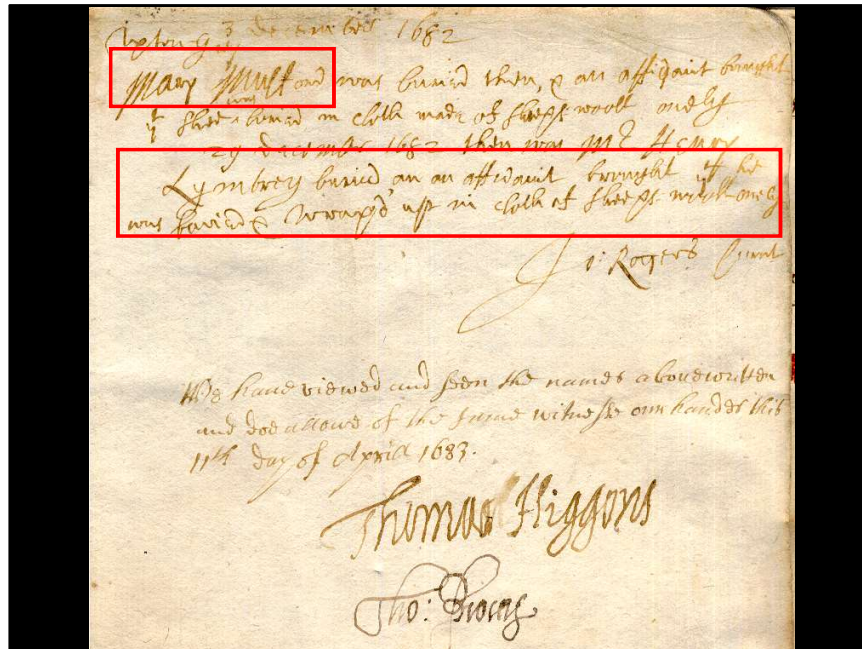 Upton Gry 3 december 1682
Mary Must ard was buried then, & an affidavit brought
yt shee was buried in cloth made of sheeps wooll onely
29 december 1682 then was Mr Henry
Lymbrey buried an an affidavit brought yt he
was buried & wrapp'd up in cloth of sheeps wooll onely
Jo: Rogers Curat
We have viewed and seen the names abovewritten
and doe allowe of the same witnesse our handes this
11th day of Aprill 1683.
Thomas Higgons
Tho: